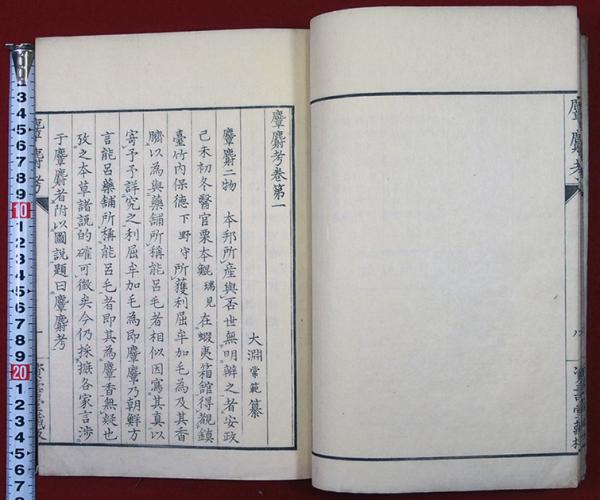 麞麝考卷第一
大淵常範纂
麞麝二物本邦所産與否世無明辨之者安政
己未初冬醫官栗本鯤瑞見在蝦夷箱館得觀鎮
臺竹內保德下野守所獲利屈牟加毛為及其香
臍以為與藥舖所稱能呂毛者相似因寫其真以
寄予予詳究之利屈牟加毛為即麞麞乃朝鮮方
言能呂藥舖所稱能呂毛者即其為麞香無疑也
攷之本草諸說的確可徵矣今仍採摭各家言涉
于麞麝者附以圖說題曰麞麝考
麞麝考
麞麝考
3
4
5
6
7
8
9
10
1
2
3
4
5
6
7
8
9
20
1
2
3
4
5
6
7